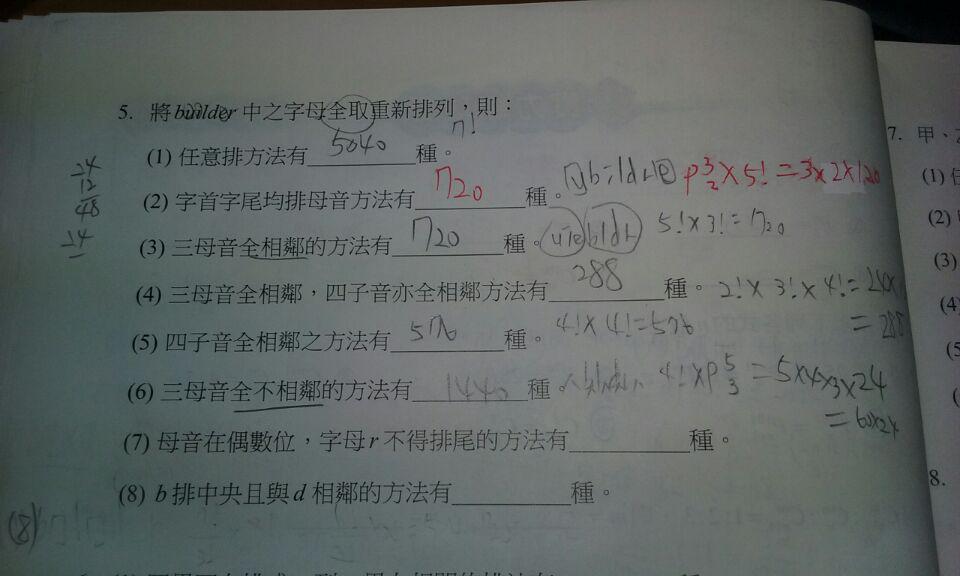 5. 將builder中之字母全取重新排列，則：
7!
(1) 任意排方法有 5040 種。
(2) 字首字尾均排母音方法有 720 種。 P 3 2 × 5! = 3×2×120
(3) 三母音全相鄰的方法有 720 種。 uie bldr 5! × 3! = 720
(4) 三母音全相鄰，四子音亦全相鄰方法有 288 種。 2! × 3! × 4! = 24×
= 288
(5) 四子音全相鄰之方法有 576 種。 4! × 4! = 576
(6) 三母音全不相鄰的方法有 1440 種。 4! × P 5 3 = 5×4×3×24
= 60×24
(7) 母音在偶數位，字母r不得排尾的方法有 種。
(8) b排中央且與d相鄰的方法有 種。
24
12
48
24
(8)
7. 甲、
(1)
(2)
(3)
(4)
(5)
8.